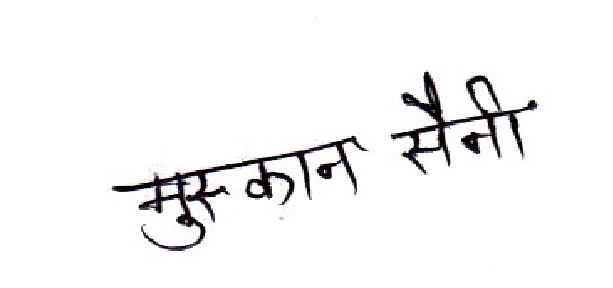 मुस्कान सैनी